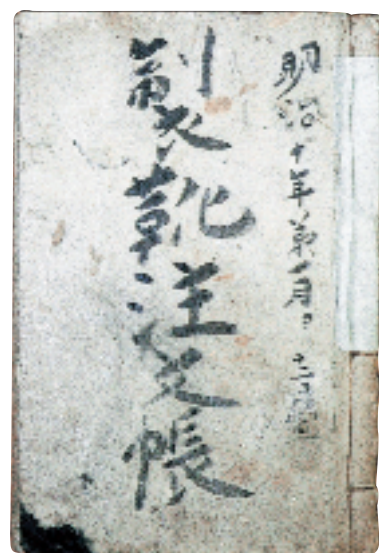 明治十年第一月
製靴注文帳